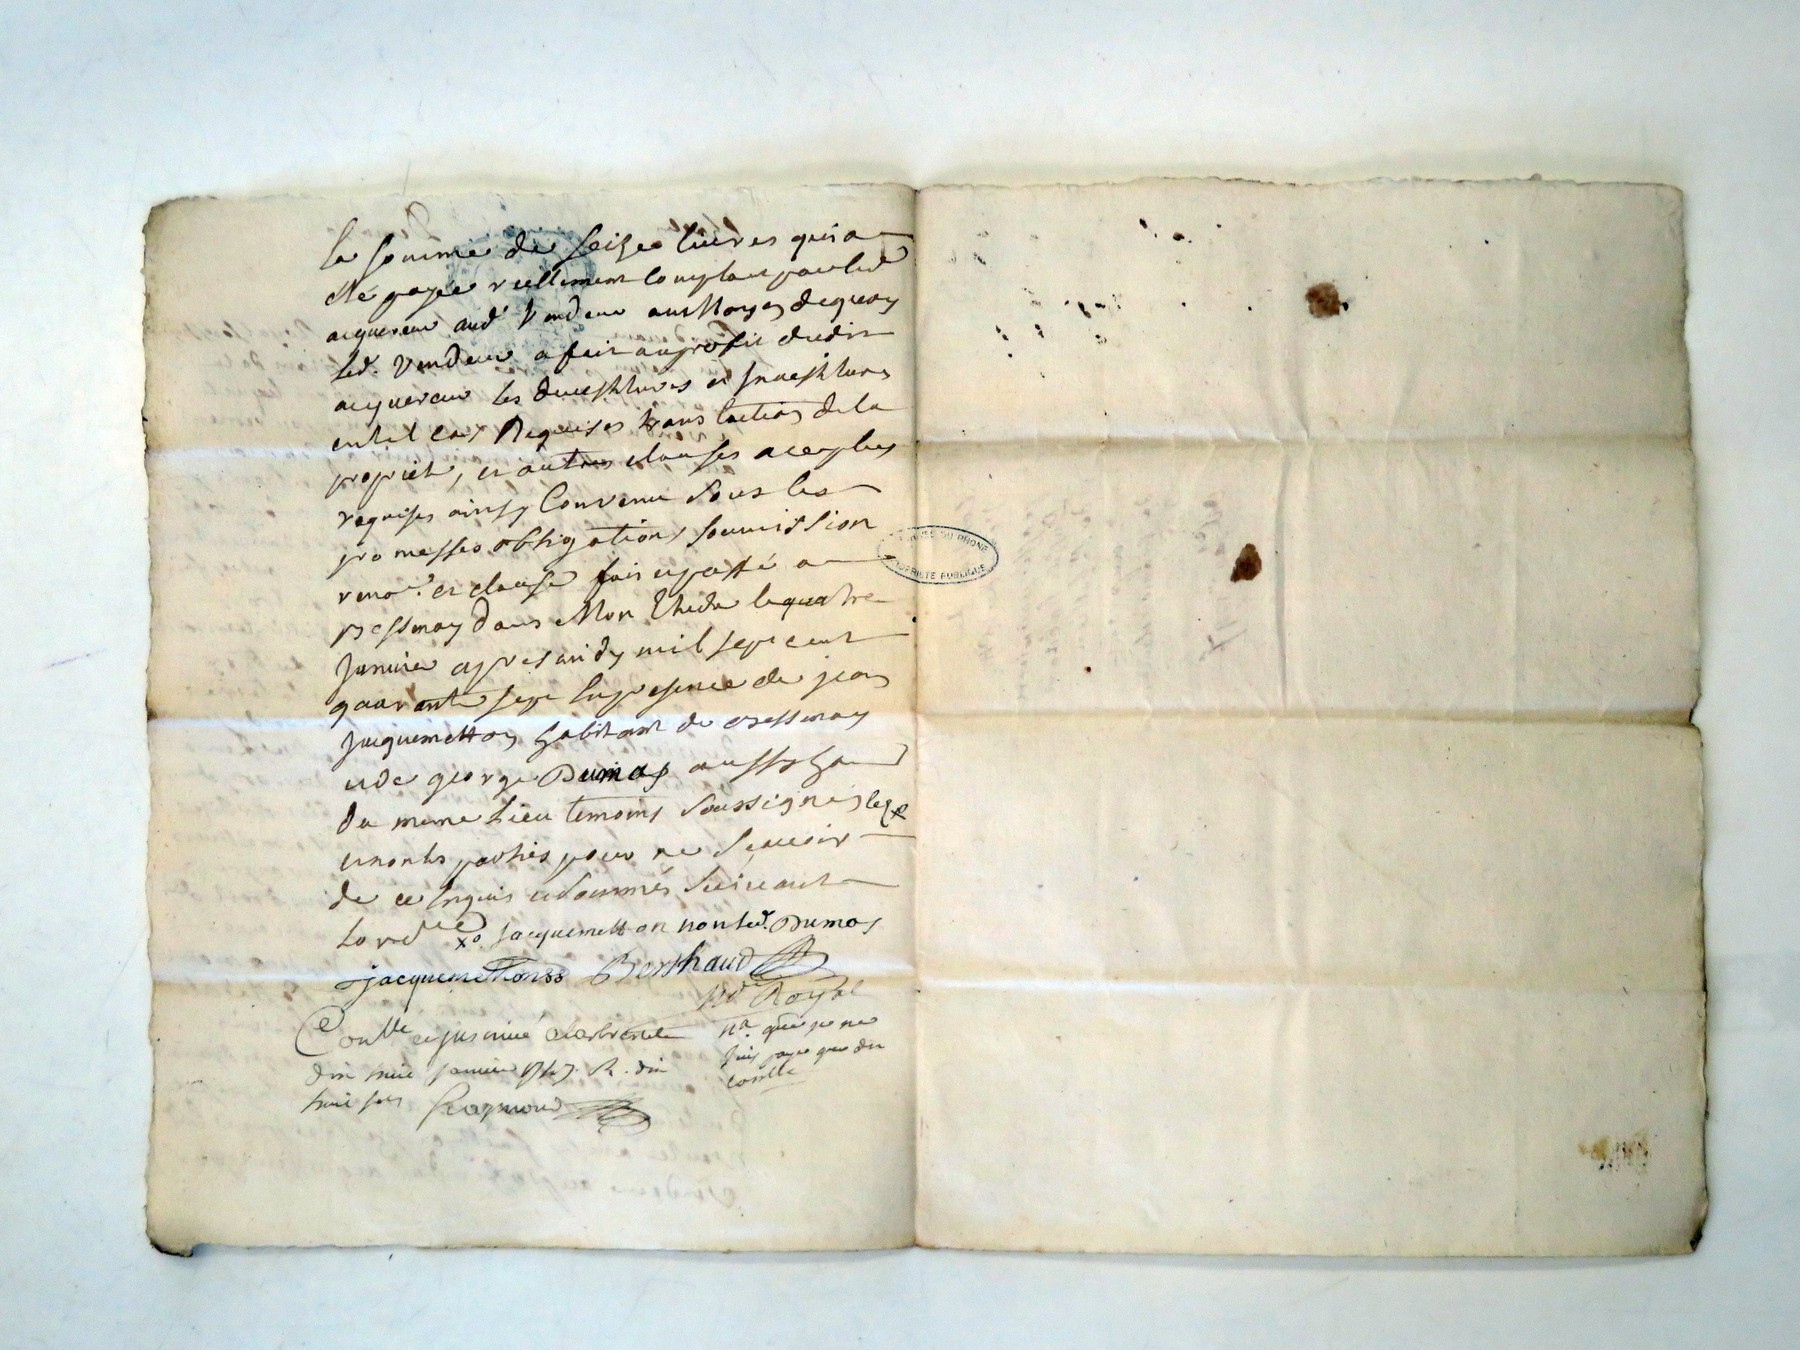 la somme de seize livres qui a
eté payée reellement comptant par led
acquereur aud vendeur au Moyen dequoy
led. vendeur a fait au proffit dudit
acquereur les devestitures et investitures
en tel cas Requises translation de la
proprieté, et autres clauses acceptées
requises ainsy convenu sous les
promesses obligations soumission
reno.on et clause fait et passé a
Bessenay dans Mon Etude le quatre
Janvier apres midy mil sept cent
quarante sept en presence de jean
Jacquemetton habitant de Bessenay
et de george Dumas aussy hant
du meme lieu temoins soussignes
et non les parties pour ne scavoir
de ce enquis et sommés suivant
lord.ce jacquemetton non led. Dumas
jacquemetton Berthaud
Nre Royal
Conllé et insinué a Larbresle
dix huit janvier 1747. R. dix
huit sols Raymond
na. que je ne
suis payé que du
conlle
ARCHIVES DU RHONE
PROPRIETE PUBLIQUE